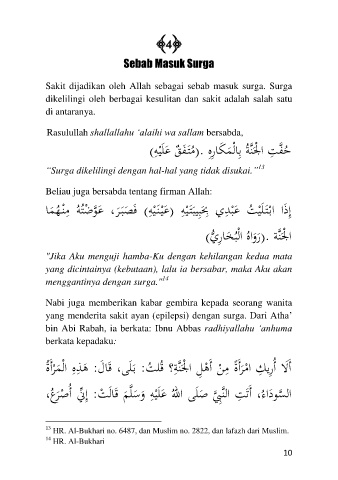 4
Sebab Masuk Surga
Sakit dijadikan oleh Allah sebagai sebab masuk surga. Surga
dikelilingi oleh berbagai kesulitan dan sakit adalah salah satu
di antaranya.
Rasulullah shallallahu ‘alaihi wa sallam bersabda,
حُفَّتِ الْجَنَّةُ بِالْمَكَارِهِ .(مُتَّفَقٌ عَلَيْهِ)
“Surga dikelilingi dengan hal-hal yang tidak disukai.”13
Beliau juga bersabda tentang firman Allah:
إِذَا ابْتَلَيْتُ عَبْدِي بِحَبِيبَتَيْهِ (عَيْنَيْهِ) فَصَبَرَ، عَوَّضْتُهُ مِنْهُمَا
الْجَنَّة .(رَوَاهُ الْبُخَارِيُّ)
"Jika Aku menguji hamba-Ku dengan kehilangan kedua mata
yang dicintainya (kebutaan), lalu ia bersabar, maka Aku akan
menggantinya dengan surga."14
Nabi juga memberikan kabar gembira kepada seorang wanita
yang menderita sakit ayan (epilepsi) dengan surga. Dari Atha’
bin Abi Rabah, ia berkata: Ibnu Abbas radhiyallahu ‘anhuma
berkata kepadaku:
أَلَا أُرِيكِ امْرَأَةً مِنْ أَهْلِ الْجَنَّةِ؟ قُلتُ: بَلَى، قَالَ: هَذِهِ الْمَرْأَةُ
السَّودَاءُ، أَتَتِ النَّبِيَّ صَلَى اللهُ عَلَيْهِ وَسَلَّمَ قَالَتْ: إِنِّي أُصْرَعُ،
13 HR. Al-Bukhari no. 6487, dan Muslim no. 2822, dan lafazh dari Muslim.
14 HR. Al-Bukhari
10